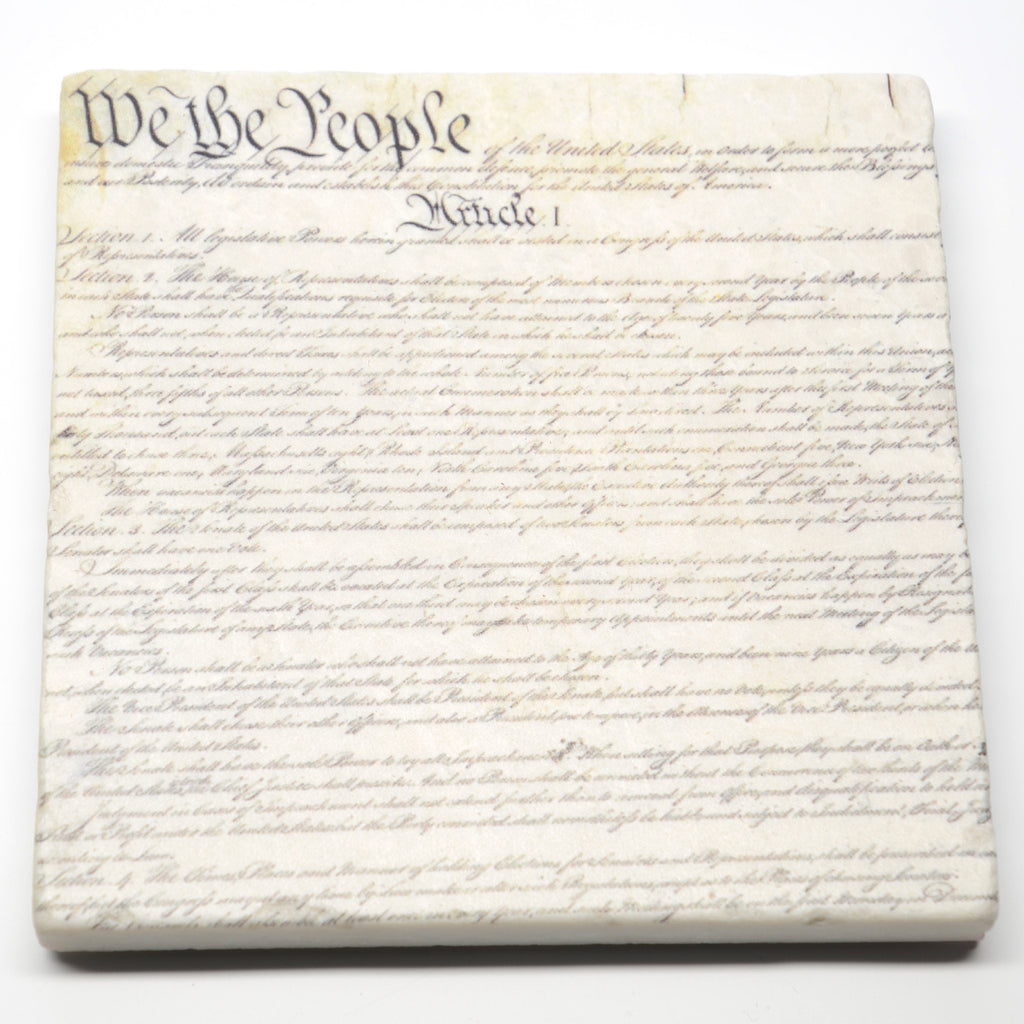 We the People of the United States, in order to form a more perfect
insure domestic Tranquility, provide for the common defence, promote the general Welfare, and secure the Blessings
and our Posterity, do ordain and establish this Constitution for the United States of America.
Article I.
Section 1. All legislative Powers herein granted shall be vested in a Congress of the United States, which shall consist
of Representatives.
Section 2. The House of Representatives shall be composed of Members chosen every second Year by the People of the
in each State shall have the Qualifications requisite for Electors of the most numerous Branch of the State Legislature.
No Person shall be a Representative who shall not have attained to the Age of twenty five Years, and been seven Years a
and who shall not, when elected, be an Inhabitant of that State in which he shall be chosen.
Representatives and direct Taxes shall be apportioned among the several States which may be included within this Union,
Numbers, which shall be determined by adding to the whole Number of free Persons, including those bound to Service for a Term of
not taxed, three fifths of all other Persons. The actual Enumeration shall be made within three Years after the first Meeting of the
and within every subsequent Term of ten Years, in such Manner as they shall by Law direct. The Number of Representatives
thirty Thousand, but each State shall have at Least one Representative; and until such enumeration shall be made, the State of
entitled to chuse three, Massachusetts eight, Rhode Island and Providence Plantations one, Connecticut five, New York six,
eight, Delaware one, Maryland six, Virginia ten, North Carolina five, South Carolina five, and Georgia three.
When vacancies happen in the Representation from any State, the Executive Authority thereof shall issue Writs of Election
The House of Representatives shall chuse their Speaker and other Officers; and shall have the sole Power of Impeachment.
Section. 3. The Senate of the United States shall be composed of two Senators from each State, chosen by the Legislature
Senator shall have one Vote.
Immediately after they shall be assembled in Consequence of the first Election, they shall be divided as equally as may
of the Senators of the first Class shall be vacated at the Expiration of the second Year, of the second Class at the Expiration of the
Class at the Expiration of the sixth Year, so that one third may be chosen every second Year; and if Vacancies happen by
Recess of the Legislature of any State, the Executive thereof may make temporary Appointments until the next Meeting of the
such Vacancies.
No Person shall be a Senator who shall not have attained to the Age of thirty Years, and been nine Years a Citizen of the
not, when elected, be an Inhabitant of that State for which he shall be chosen.
The Vice President of the United States shall be President of the Senate, but shall have no Vote, unless they be equally divided.
The Senate shall chuse their other Officers, and also a President pro tempore, in the Absence of the Vice President, or when he
President of the United States.
The Senate shall have the sole Power to try all Impeachments. When sitting for that Purpose, they shall be on Oath or
of the United States the Chief Justice shall preside: And no Person shall be convicted without the Concurrence of two thirds of the
Judgment in Cases of Impeachment shall not extend further than to removal from Office, and disqualification to hold
Trust or Profit under the United States: but the Party convicted shall nevertheless be liable and subject to Indictment, Trial,
according to Law.
Section. 4. The Times, Places and Manner of holding Elections for Senators and Representatives, shall be prescribed in
thereof; but the Congress may at any time by Law make or alter such Regulations, except as to the Places of chusing Senators.
The Congress shall assemble at least once in every Year, and such Meeting shall be on the first Monday in